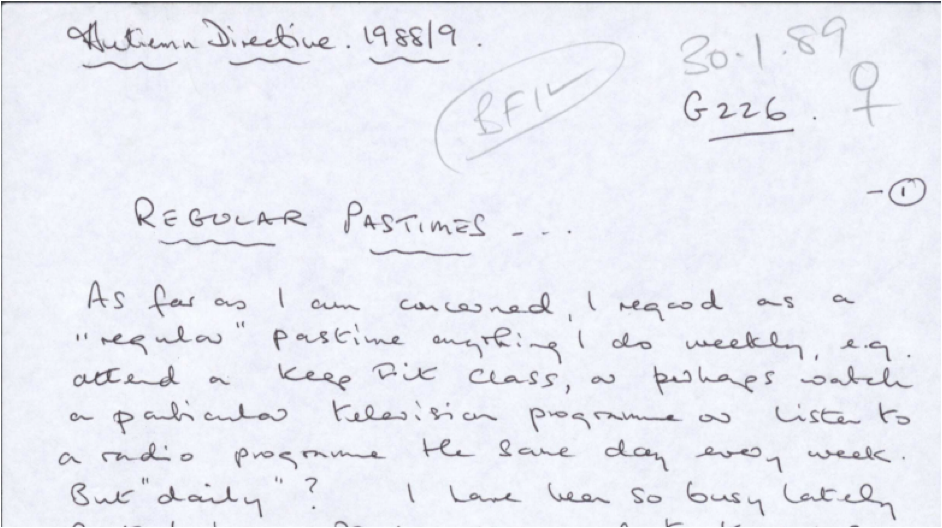 Autumn Directive. 1988/9.
30.1.89
BFIL
G226. ♀
-①
REGULAR PASTIMES ...
As far as I am concerned, I regard as a
"regular" pastime anything I do weekly, e.g.
attend a Keep Fit class, or perhaps watch
a particular television programme or listen to
a radio programme the same day every week.
But "daily"? I have been so busy lately